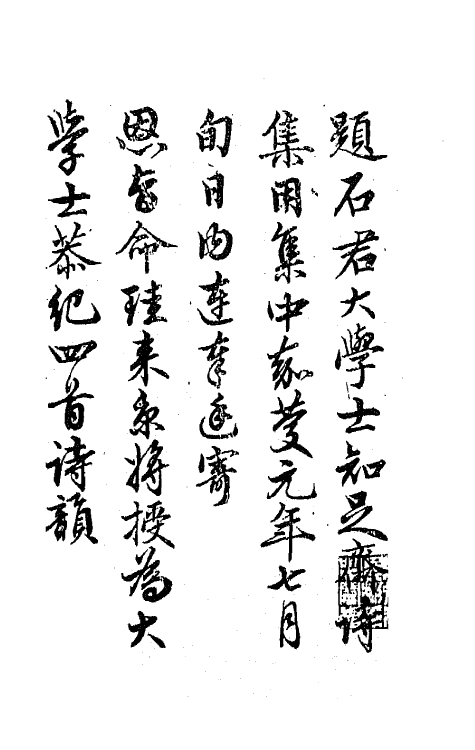 題石君大學士知足齋詩
集用集中嘉慶元年七月
旬日內連奉廷寄
恩旨命珪來京將授為大
學士恭紀四首詩韻